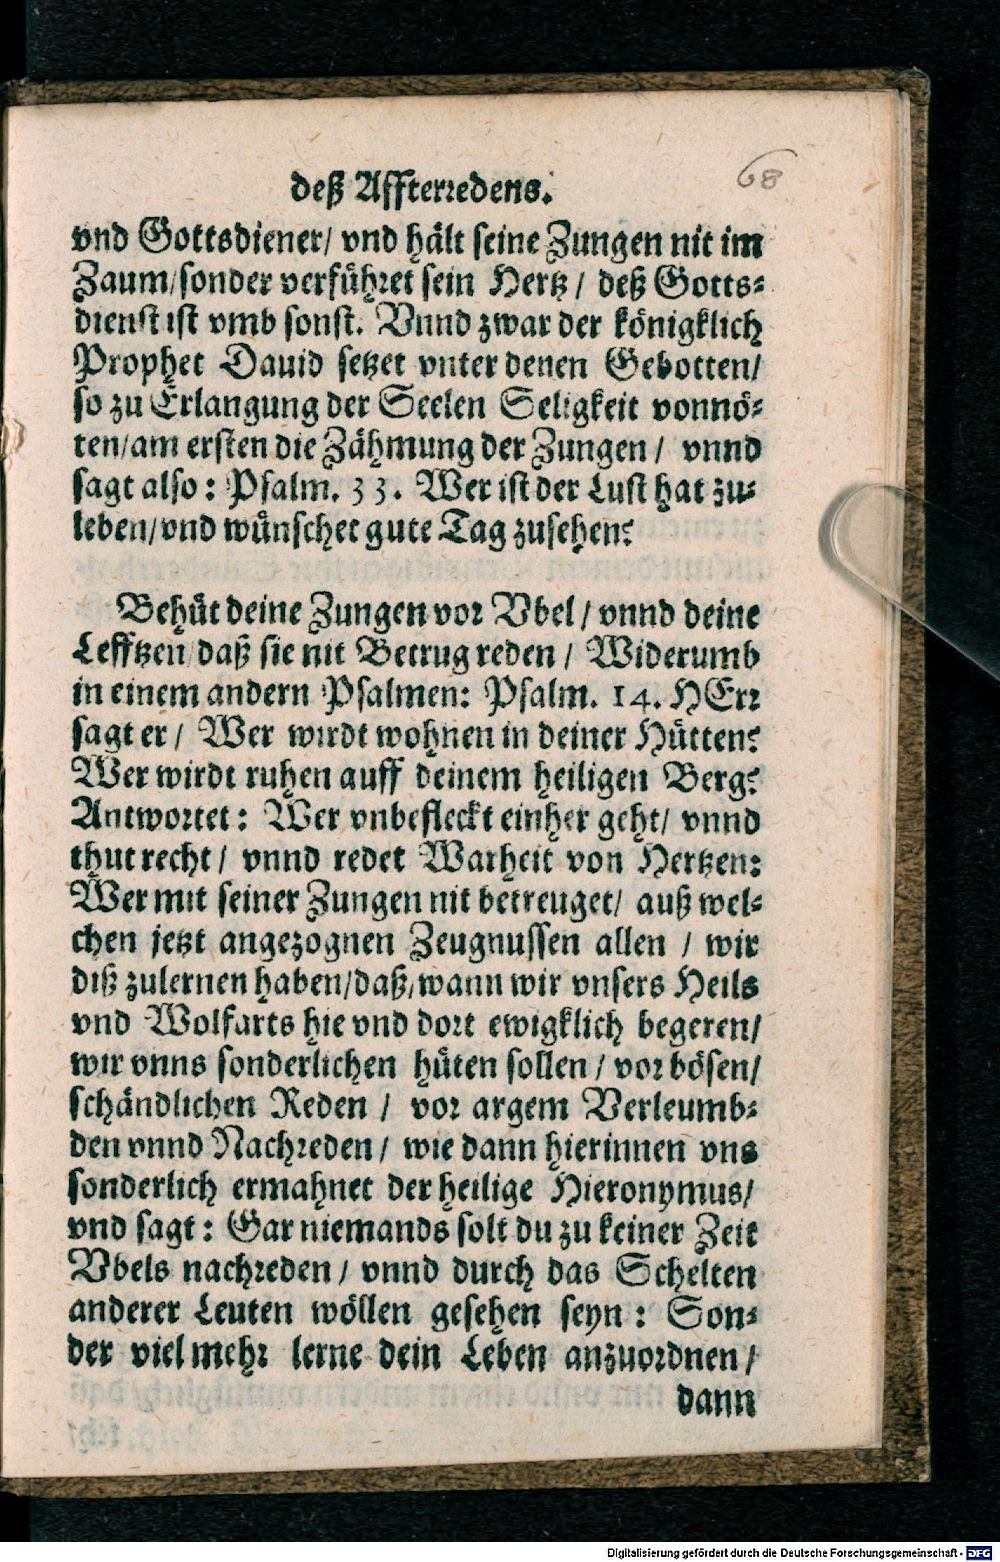 deß Affterredens.
68
vnd Gottsdiener/ vnd hält seine Zungen nit im
Zaum/sonder verführet sein Hertz / deß Gotts-
dienst ist vmb sonst. Vnnd zwar der königklich
Prophet Dauid setzet vnter denen Gebotten/
so zu Erlangung der Seelen Seligkeit vonnö-
ten/am ersten die Zähmung der Zungen / vnnd
sagt also: Psalm. 33. Wer ist der Lust hat zu-
leben/vnd wünschet gute Tag zusehen?
Behüt deine Zungen vor Vbel / vnnd deine
Lefftzen daß sie nit Betrug reden / Widerumb
in einem andern Psalmen: Psalm. 14. HErr
sagt er / Wer wirdt wohnen in deiner Hütten?
Wer wirdt ruhen auff deinem heiligen Berg?
Antwortet: Wer vnbefleckt einher geht/ vnnd
thut recht / vnnd redet Warheit von Hertzen:
Wer mit seiner Zungen nit betreuget/ auß wel-
chen jetzt angezognen Zeugnussen allen / wir
diß zulernen haben/daß/wann wir vnsers Heils
vnd Wolfarts hie vnd dort ewigklich begeren/
wir vnns sonderlichen hüten sollen / vor bösen/
schändlichen Reden / vor argem Verleumb-
den vnnd Nachreden / wie dann hierinnen vns
sonderlich ermahnet der heilige Hieronymus/
vnd sagt: Gar niemands solt du zu keiner Zeit
Vbels nachreden / vnnd durch das Schelten
anderer Leuten wöllen gesehen seyn: Son-
der viel mehr lerne dein Leben anzuordnen /
dann
Digitalisierung gefördert durch die Deutsche Forschungsgemeinschaft - DFG